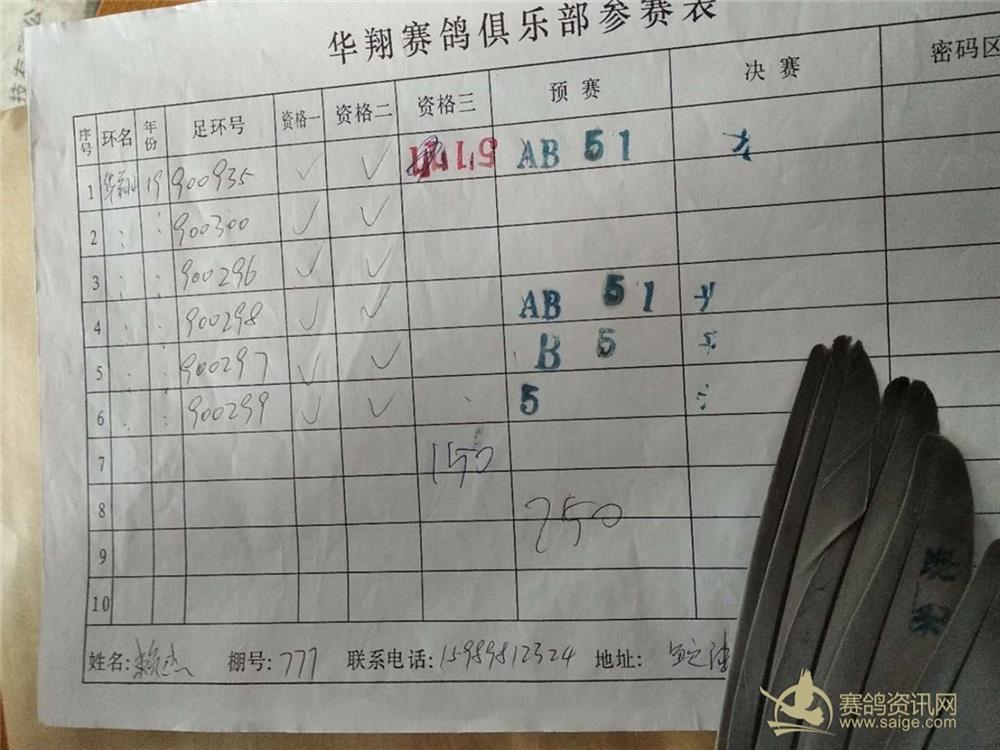 华翔赛鸽俱乐部参赛表
序号 环名 年份 足环号 资格一 资格二 资格三 预赛 决赛 密码区
1 华翔 19 900935 ✓ ✓ AB 51
2 : : 900300 ✓ ✓
3 : : 900296 ✓ ✓
4 : : 900298 ✓ ✓ AB 51
5 : : 900297 ✓ ✓ B 5
6 : : 900299 ✓ ✓ 5
7 150
8 250
9
10
姓名: 赖杰 棚号: 777 联系电话: 15989812324 地址:
赛鸽资讯网
www.saige.com